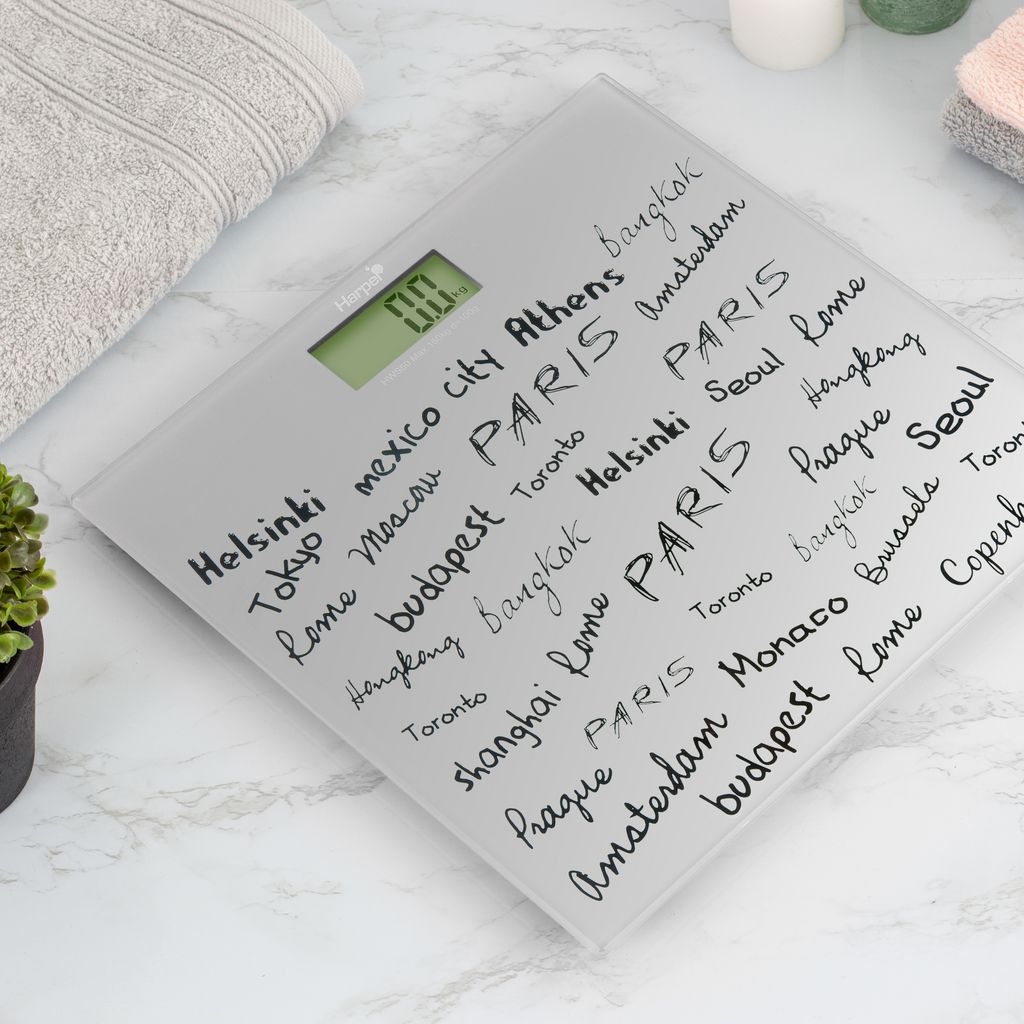 Harper
0.0 kg
Helsinki mexico city Athens Bangkok
Tokyo Moscow PARIS Amsterdam
Rome budapest Toronto Helsinki PARIS Rome
Hongkong Bangkok Seoul Hongkong
Toronto shanghai Rome PARIS Prague Seoul
PARIS Toronto Bangkok Brussels
Prague Amsterdam Monaco
budapest Rome